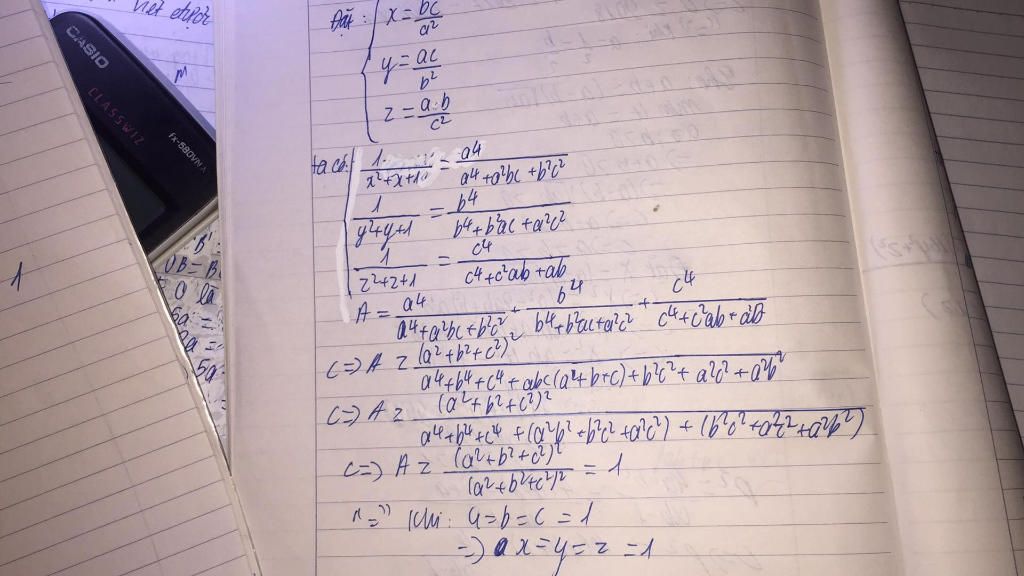 viết được
CASIO
CLASSWIZ
fx-580VN X
m
1
B
UB = B
0 là
5a =
a =
5a
Đặt: { x = bc/a²
y = ac/b²
z = a.b/c²
ta có: 1/(x²+x+1) = a⁴/(a⁴+a²bc+b²c²)
1/(y²+y+1) = b⁴/(b⁴+b²ac+a²c²)
1/(z²+z+1) = c⁴/(c⁴+c²ab+ab)
A = a⁴/(a⁴+a²bc+b²c²) + b⁴/(b⁴+b²ac+a²c²) + c⁴/(c⁴+c²ab+a²b²)
<=> A ≥ (a²+b²+c²)²/(a⁴+b⁴+c⁴+abc(a+b+c)+b²c²+a²c²+a²b²)
<=> A ≥ (a²+b²+c²)²/(a⁴+b⁴+c⁴+(a²b²+b²c²+a²c²)+(b²c²+a²c²+a²b²))
<=> A ≥ (a²+b²+c²)²/(a²+b²+c²)² = 1
"=" khi: a=b=c=1
=> x=y=z=1